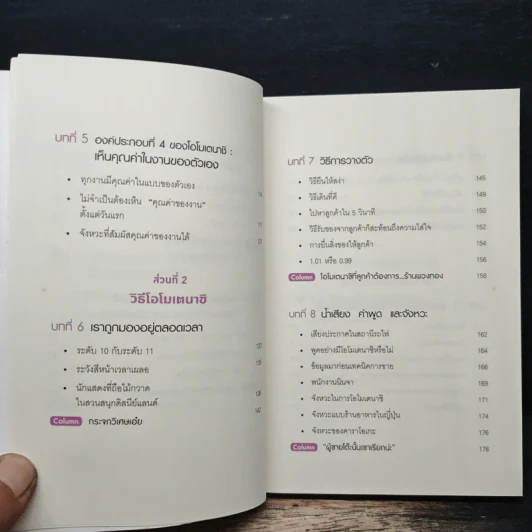 บทที่ 5 องค์ประกอบที่ 4 ของโอโมเตนาชิ :
เห็นคุณค่าในงานของตัวเอง
• ทุกงานมีคุณค่าในแบบของตัวเอง
• ไม่จำเป็นต้องเห็น "คุณค่าของงาน"
ตั้งแต่วันแรก
• จังหวะที่สัมผัสคุณค่าของงานได้
ส่วนที่ 2
วิธีโอโมเตนาชิ
บทที่ 6 เราถูกมองอยู่ตลอดเวลา
• ระดับ 10 กับระดับ 11
• ระวังสีหน้าเวลาเผลอ
• นักแสดงที่ถือไม้กวาด
ในสวนสนุกดิสนีย์แลนด์
Column กระจกวิเศษเอ๋ย
บทที่ 7 วิธีการวางตัว
• วิธียืนให้สง่า 145
• วิธีเดินที่ดี 149
• ไปหาลูกค้าใน 5 วินาที 150
• วิธีรับของจากลูกค้าก็สะท้อนถึงความใส่ใจ 152
• การยื่นสิ่งของให้ลูกค้า 154
• 1.01 หรือ 0.99 156
Column โอโมเตนาชิที่ลูกค้าต้องการ...ร้านพวงทอง 158
บทที่ 8 น้ำเสียง คำพูด และจังหวะ
• เสียงประกาศในสถานีรถไฟ 162
• พูดอย่างมีโอโมเตนาชิหรือไม่ 164
• ข้อมูลมาก่อนเทคนิคการขาย 166
• พนักงานนินจา 169
• จังหวะในการโอโมเตนาชิ 171
• จังหวะแบบร้านอาหารในญี่ปุ่น 174
• จังหวะของคาราโอเกะ 176
Column "ผู้ชายโต๊ะนั้นเขาเรียกน่ะ" 178